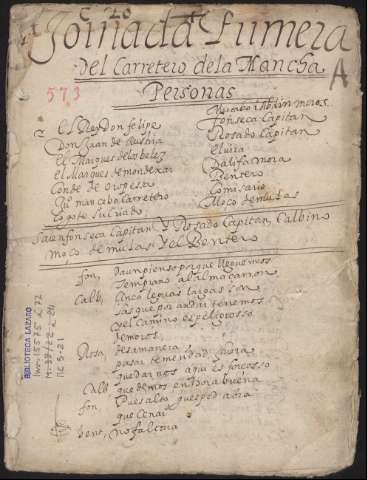 C 20
Jornada Primera
del Carretero de la Mancha
A
573
Personas
El Rey Don felipe
Don Juan de Austria
El Marques de los belez
El Marques de mondexar
Conde de oropesa
Gusman cabo Carretero
Cogote su criado
moros
fonseca Capitan
Rosado Capitan
elvira
Dalifa mora
Bentero
Comisario
Moço de mulas
Salen fonseca Capitan Y Rosado Capitan, Calbino
moço de mulas y el Bentero
fon, pienso porque lleguemos
temprano al almacarron
Calb, cinco leguas largas son
las que por andar tenemos
y el camino es peligrosso
de moros,
Rosa, desa manera
pasar temeridad fuera
quedarnos aqui es forcosso
Alb quedemos en hora buena
fon Pues alto guesped abra
que cenar
bent, no faltara
BIBLIOTECA LAZARO
Inv. 15575